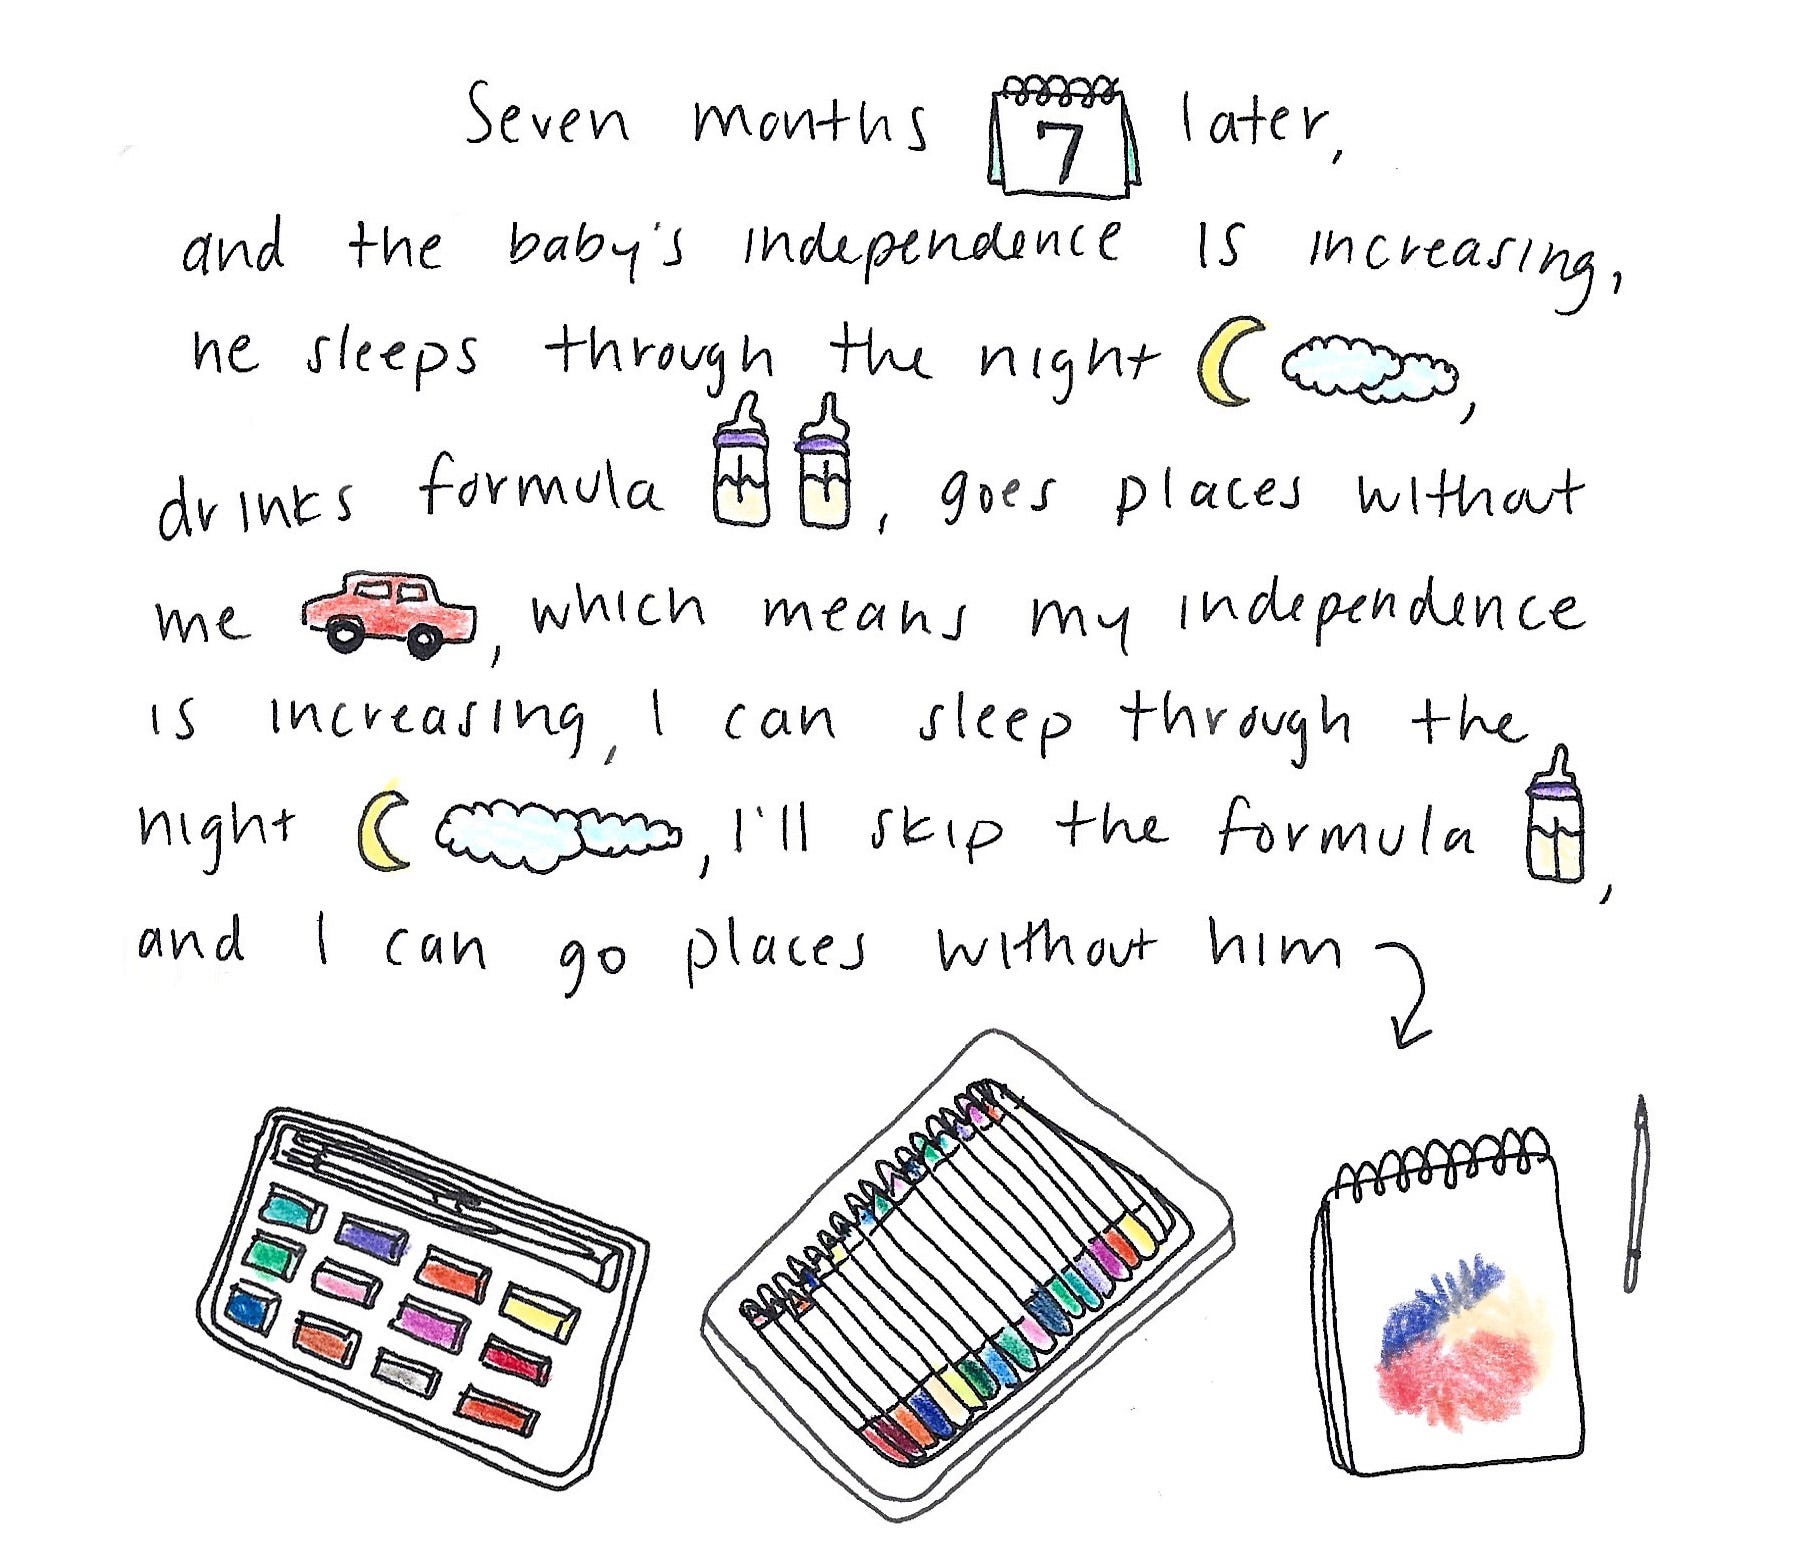 Seven months 7 later,
and the baby's independence is increasing,
he sleeps through the night ,
drinks formula , goes places without
me , which means my independence
is increasing, I can sleep through the
night , I'll skip the formula ,
and I can go places without him